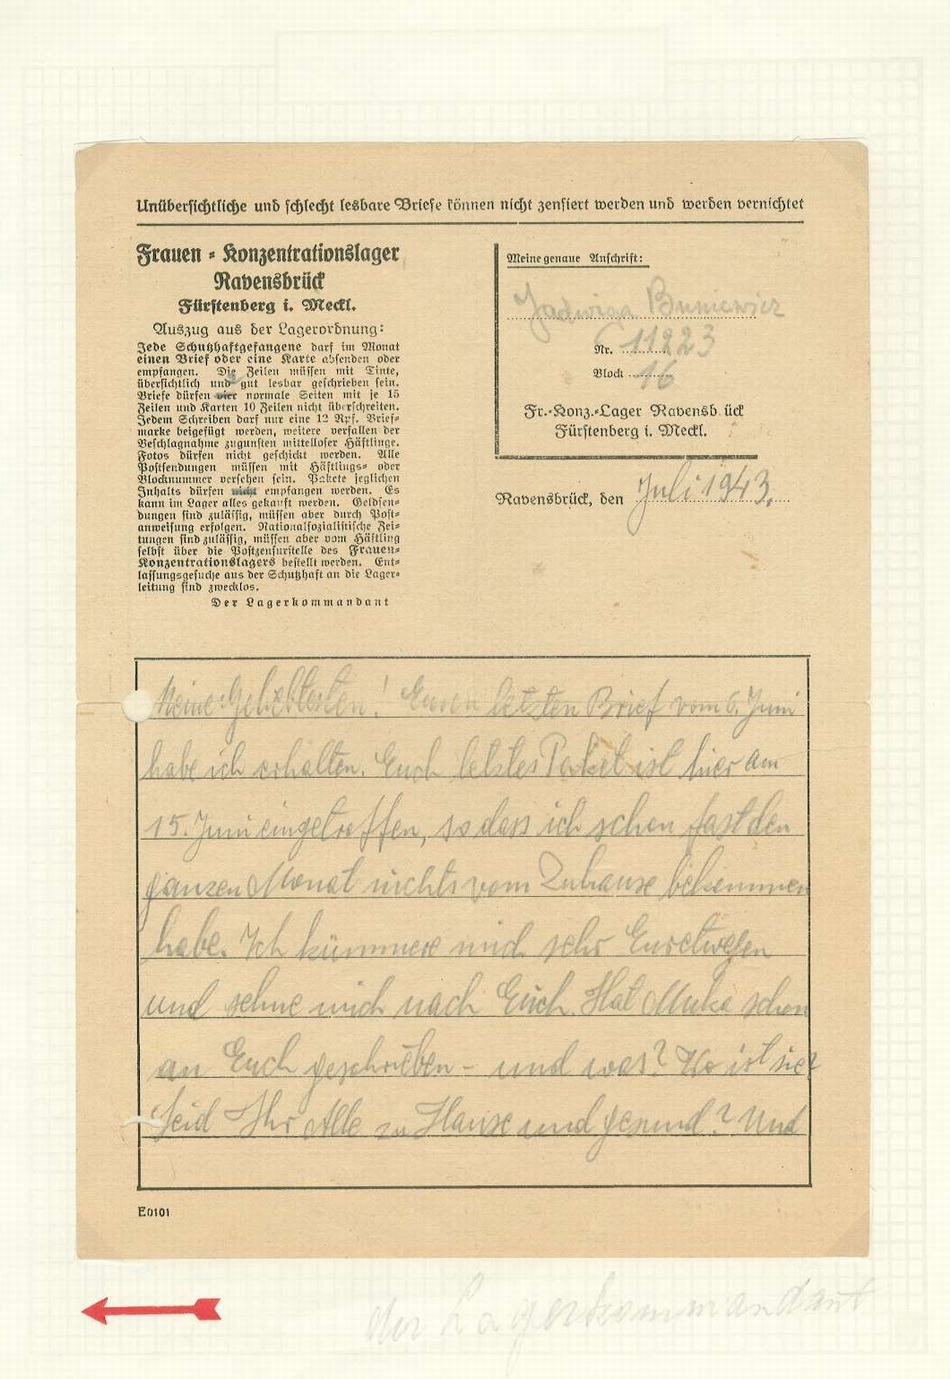 Unübersichtliche und schlecht lesbare Briefe können nicht zensiert werden und werden vernichtet
Frauen-Konzentrationslager
Ravensbrück
Fürstenberg i. Meckl.
Auszug aus der Lagerordnung:
Jede Schutzhaftgefangene darf im Monat
einen Brief oder eine Karte absenden oder
empfangen. Die Zeilen müssen mit Tinte,
übersichtlich und gut lesbar geschrieben sein.
Briefe dürfen vier normale Seiten mit je 15
Zeilen und Karten 10 Zeilen nicht überschreiten.
Jedem Schreiben darf nur eine 12 Rpf. Brief-
marke beigefügt werden, weitere verfallen der
Beschlagnahme zugunsten mittelloser Häftlinge.
Fotos dürfen nicht geschickt werden. Alle
Postsendungen müssen mit Häftlings- oder
Blocknummer versehen sein. Pakete jeglichen
Inhalts dürfen nicht empfangen werden. Es
kann im Lager alles gekauft werden. Geldsen-
dungen sind zulässig, müssen aber durch Post-
anweisung erfolgen. Nationalsozialistische Zei-
tungen sind zulässig, müssen aber vom Häftling
selbst über die Postzensurstelle des Frauen-
Konzentrationslagers bestellt werden. Ent-
lassungsgesuche aus der Schutzhaft an die Lager-
leitung sind zwecklos.
Der Lagerkommandant
Meine genaue Anschrift:
Jadwiga Buniewicz
Nr. 11823
Block 16
Fr.-Konz.-Lager Ravensbrück
Fürstenberg i. Meckl.
Ravensbrück, den Juli 1943.
Meine Geliebtesten! Euren letzten Brief vom 6. Juni
habe ich erhalten. Euch letztes Paket ist hier am
15. Juni eingetroffen, so dass ich schon fast den
ganzen Monat nichts vom Zuhause bekommen
habe. Ich kümmere mich sehr Euretwegen
und sehne mich nach Euch. Hat schon
an Euch geschrieben - und was? Wo ist sie?
Seid Ihr Alle zu Hause und gesund? Und
E0101
der Lagerkommandant